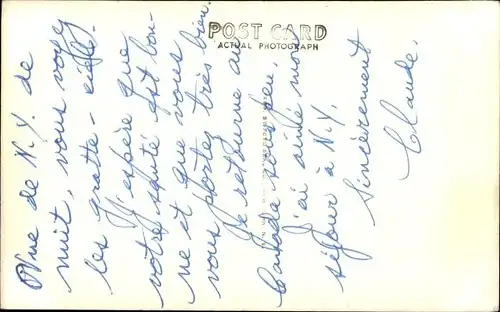 POST CARD
ACTUAL PHOTOGRAPH
Vue de N.Y. de
nuit, vous voyez
les gratte-ciels.
J'espère que
votre santé est bon-
ne et que vous
vous portez très bien.
Je retourne au
Canada sous peu.
J'ai aimé mon
séjour à N.Y.
Sincèrement
Claude.